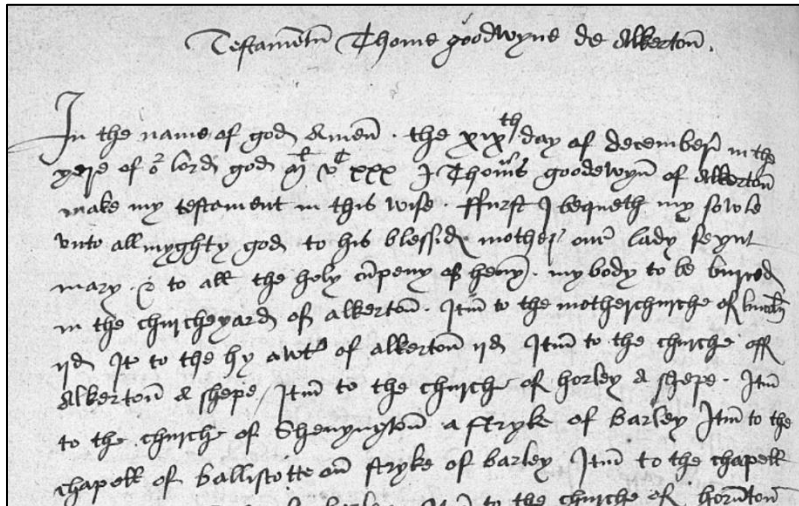 Testamentu Thome goodwyne de Alkerton.
In the name of god Amen. the xix th day of december in the
yere of or lord god M vC xxx I Thoms goodewyn of Alkerton
make my testament in this wise. ffurst I bequeth my sowle
unto allmyghty god to his blessid mother our lady seynt
mary. & to all the holy cupeny of hevyn. my body to be buried
in the churcheyard of alkerton. Itm to the motherchurche of lincoln
ijd It to the hy awtr of alkerton ijd Itm to the churche off
Alkerton a shepe / Itm to the churche of horley a shepe. Itm
to the churche of Shenyngton a stryke of barley Itm to the
chapell of balliscotte on stryke of barley Itm to the chapell
Itm to the churche of hornton